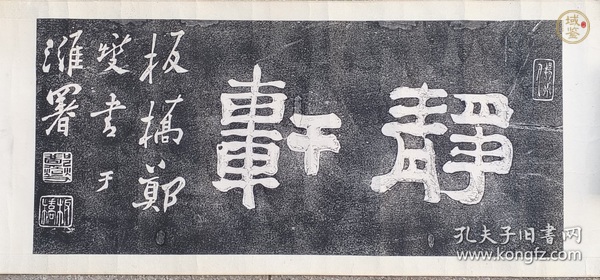 靜軒
板橋鄭
燮書于
濰署
域鉴
孔夫子旧书网
www.kongfz.com